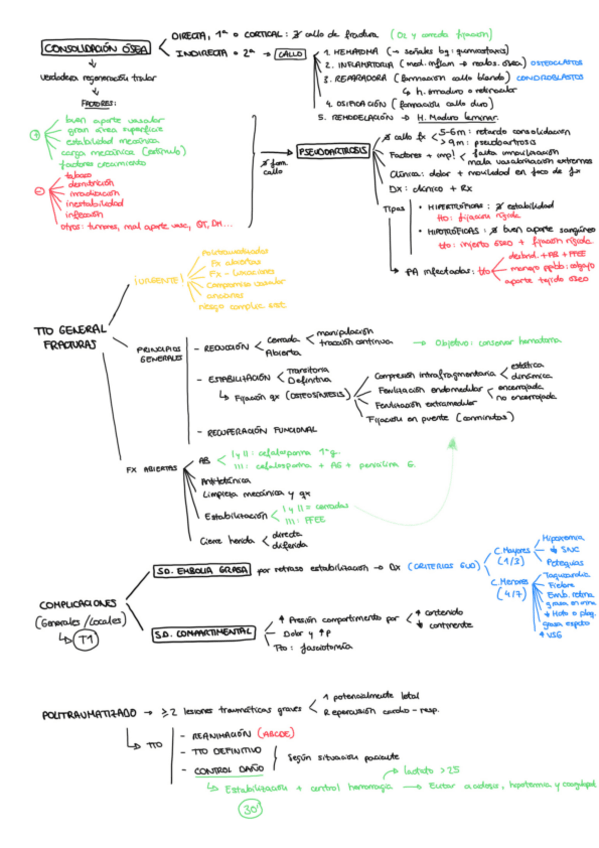 CONSOLIDACIÓN ÓSEA
DIRECTA, 1ª o CORTICAL: ∄ callo de fractura (O₂ y correcta fijación)
INDIRECTA o 2ª → CALLO
1. HEMATOMA (→ señales bq: quimiotaxis)
2. INFLAMATORIA (med. inflam → reabs. ósea) OSTEOCLASTOS
3. REPARADORA (formación callo blando) CONDROBLASTOS
↳ h. inmaduro o reticular
4. OSIFICACIÓN (formación callo duro)
5. REMODELACIÓN → H. Maduro laminar.
verdadera regeneración tisular
FACTORES:
+
buen aporte vascular
gran área superficie
estabilidad mecánica
carga mecánica (estímulo)
factores crecimiento
-
tabaco
desnutrición
inestabilidad
infección
otros: tumores, mal aporte vasc, QT, DM...
∄ form. callo
PSEUDOARTROSIS
∄ callo fx
5-6m: retardo consolidación
>9m: pseudoartrosis
Factores + imp!
falta inmovilización
mala vascularización extremos
Clínica: dolor + movilidad en foco de fx
DX: clínico + Rx
Tipos
• HIPERTRÓFICAS: ∄ estabilidad
tto: fijación rígida
• HIPOTRÓFICAS: ∄ buen aporte sanguíneo
tto: injerto óseo + fijación rígida
PA infectadas: tto
desbrid. + AB + FFEE
aporte tejido óseo
TTO GENERAL FRACTURAS
¡URGENTE!
Politraumatizados
Fx abiertas
Fx - luxaciones
Compromiso vascular
ancianos
riesgo complic. sist.
PRINCIPIOS GENERALES
- REDUCCIÓN
Cerrada
manipulación
tracción continua
Abierta
→ Objetivo: conservar hematoma
- ESTABILIZACIÓN
Transitoria
Definitiva
↳ Fijación qx (OSTEOSÍNTESIS)
Compresión intrafragmentaria
estática
dinámica
Ferulización endomedular
encerrojada
no encerrojada
Ferulización extramedular
Fijación en puente (conminutas)
- RECUPERACIÓN FUNCIONAL
FX ABIERTAS
AB
I y II: cefalosporina 1ª g.
III: cefalosporina + AG + penicilina G.
Antitetánica
Limpieza mecánica y qx
Estabilización
I y II = cerradas
III: FFEE
Cierre herida
directa
diferida
COMPLICACIONES
(Generales/Locales)
↳ T1
SD. EMBOLIA GRASA por retraso estabilización → DX (CRITERIOS GUD)
C. Mayores (1/3)
Hipoxemia
↓ SNC
Petequias
C. Menores (4/7)
Taquicardia
Fiebre
Emb. retina
grasa en orina
↓ Hcto o plaq.
grasa esputo
↑ VSG
SD. COMPARTIMENTAL
↑ Presión compartimento por
↑ contenido
↓ continente
Dolor y ↑P
Tto: fasciotomía
POLITRAUMATIZADO → ≥2 lesiones traumáticas graves
1 potencialmente letal
Repercusión cardio-resp.
↳ TTO
- REANIMACIÓN (ABCDE)
- TTO DEFINITIVO
- CONTROL DAÑO
Según situación paciente
→ lactato >2.5
↳ Estabilización + control hemorragia → Evitar acidosis, hipotermia y coagulopat
30'